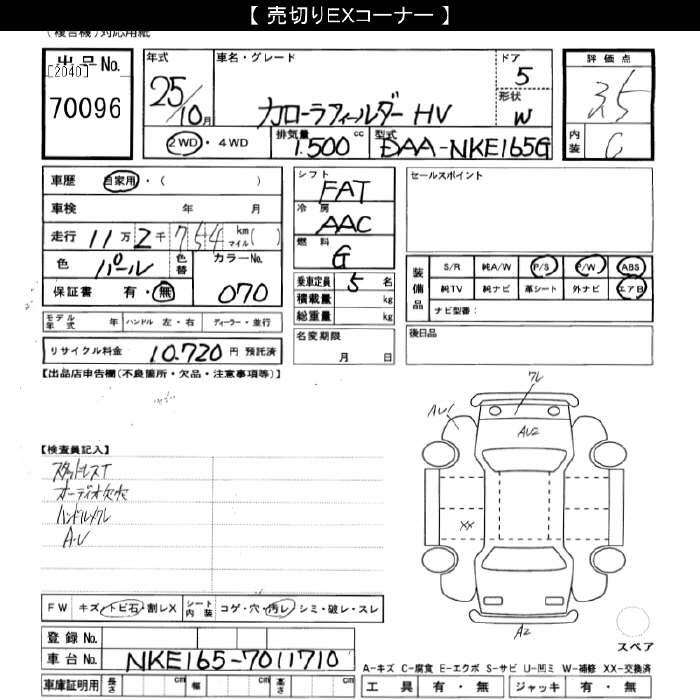 【 売切りEXコーナー 】
(複合機)対応用紙
出品No. [2040] 70096
年式 25/10月
車名・グレード カローラフィールダー HV
ドア 5
形状 W
評価点 3.5
内装 C
2WD・4WD
排気量 1.500 cc
型式 DAA-NKE165G
車歴 自家用・( )
車検 年 月
走行 11万2千754 km マイル( )
色 パール
色替
カラーNo. 070
保証書 有・無
シフト FAT
冷房 AAC
燃料 G
乗車定員 5 名
積載量 kg
総重量 kg
セールスポイント
装備品 S/R 純A/W P/S P/W ABS
純TV 純ナビ 革シート 外ナビ エアB
ナビ型番:
モデル年式 年 ハンドル 左・右 ディーラー・並行
名変期限 月 日
後日品
リサイクル料金 10.720 円 預託済
【出品店申告欄(不良箇所・欠品・注意事項等)】
ワレ
AU1
AU2
XX
A2
【検査員記入】
スタッドレスT
オーディオ欠穴
ハンドルスレ
A.U
FW キズ・トビ石・割レX シート内装 コゲ・穴・汚レ・シミ・破レ・スレ
スペア
登録No.
車台No. NKE165-7011710
A-キズ C-腐食 E-エクボ S-サビ U-凹ミ W-補修 XX-交換済
車庫証明用 長さ cm 幅 cm 高さ cm
工具 有・無 ジャッキ 有・無